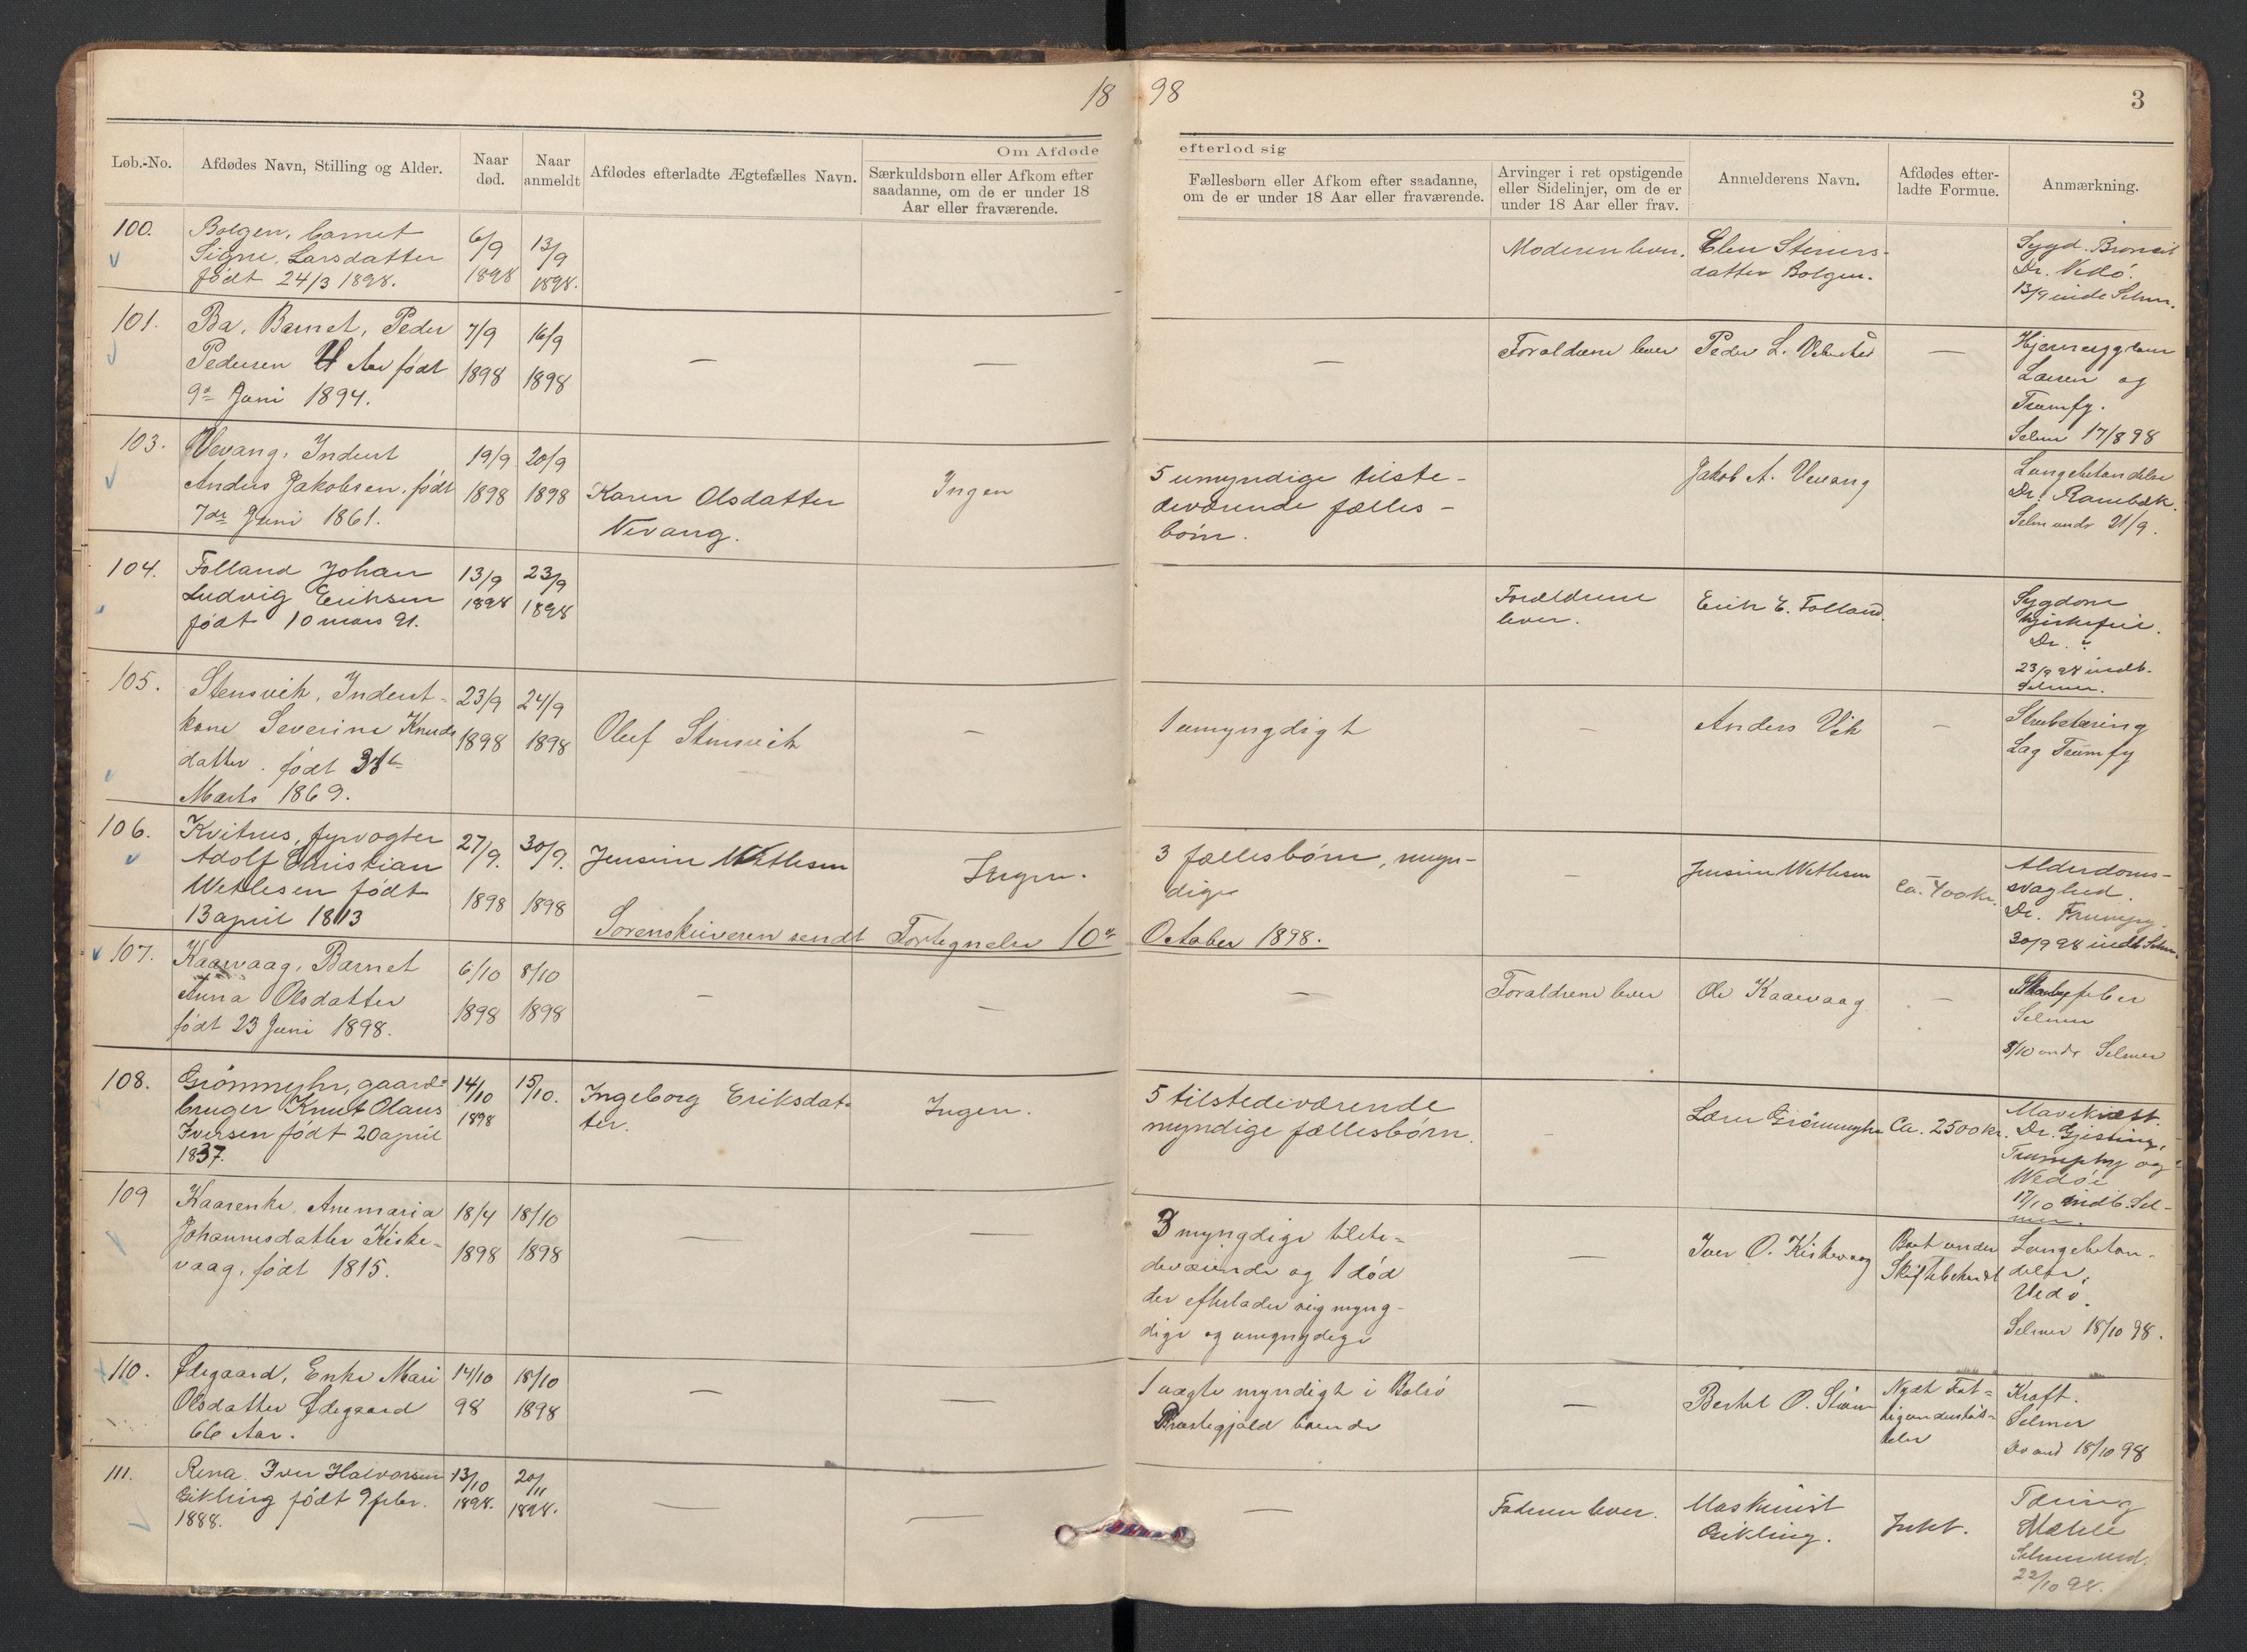 18 98
3
Løb.-No.
Afdødes Navn, Stilling og Alder.
Naar
død.
Naar
anmeldt
Om Afdøde
efterlod sig
Afdødes efterladte Ægtefælles Navn.
Særkuldsbørn eller Afkom efter
saadanne, om de er under 18
Aar eller fraværende.
Fællesbørn eller Afkom efter saadanne,
om de er under 18 Aar eller fraværende.
Arvinger i ret opstigende
eller Sidelinjer, om de er
under 18 Aar eller frav.
Anmelderens Navn.
Afdødes efter-
ladte Formue.
Anmærkning.
100.
Bolgen, barnet
Signe Larsdatter
født 24/3 1898.
6/9
1898
13/9
1898.
Moderen lever.
Elen Steners-
datter Bolgen.
Sygd.
Dr. Vedø.
13/9 inde Selmer.
101.
Ba, Barnet, Peder
Pedersen 4 Aar født
9de Juni 1894.
7/9
1898
16/9
1898
—
—
—
Forældrene lever
Peder L.
—
Larsen og
Trumfy.
Selmer 17/8 98
103.
Vevang, Inderst
Anders Jakobsen, født
7de Juni 1861.
19/9
1898
20/9
1898
Karen Olsdatter
Vevang.
Ingen
5 umyndige tilste-
deværende fælles-
børn.
Jakob A. Vevang
Lungebetændelse
Dr. Rambæk.
Selm undr 21/9.
104.
Folland Johan
Ludvig Eriksen
født 10 mars 91.
13/9
1898
23/9
1898
Forældrene
lever.
Erik E. Folland.
Sygdom
Dr. ?
23/9 98 indb.
Selmer.
105.
Stensvik, Inderst-
kone Severine Knuds
datter. født
Marts 1869.
23/9
1898
24/9
1898
Oluf Stensvik
—
1 umyngdigt
—
Anders Vik
—
Strubetæring
Lag Trumfy
106.
Kvitnes, fyrvogter
Adolf Christian
Wetlesen født
13 april 1813
27/9.
1898
30/9.
1898
Jensine Wetlesen
Ingen.
3 fællesbørn, myn-
dige
—
Jensine Wetlesen
Ca. 400 kr.
Alderdoms-
svaghed.
Dr. Trumpy.
30/9 98 indb Selm.
Sorenskriveren sendt Fortegnelse 10de
October 1898.
107.
Kaarvaag, Barnet
Anna Olsdatter
født 23 Juni 1898.
6/10
1898
8/10
1898
—
—
—
Forældrene lever
Ole Kaarvaag
—
feber
Selmer
8/10 undr Selmer
108.
Grönmyhr, gaard-
bruger Knut Olaus
Iversen født 20 april
1837.
14/10
1898
15/10.
Ingeborg Eriksdat-
ter.
Ingen.
5 tilstedeværende
myndige fællesbørn.
—
Lars Grönmyhr
Ca. 2500 kr.
Mavekræft.
Dr. Gjesting,
Trumphy og
Wedöe
17/10 indb. Sel-
mer.
109
Kaarenke, Anemaria
Johannesdatter Kirke-
vaag, født 1815.
18/4
1898
18/10
1898
—
—
3 myngdige tilste-
deværende og 1 död
der efterlader sig myng-
dige og umyngdige
—
Iver O. Kirkevaag
Boet under
Skiftebehandl
Lungebetæn-
delse,
Vedø.
Selmer 18/10 98.
110.
Ødegaard, Enke Mari
Olsdatter Ødegaard
66 Aar.
14/10
98
18/10
1898
—
—
1 ægte myndigt i Bolsö
Præstegjeld boende
—
Bertel O.
Nydt Fat-
tigunderstöt-
telse
Kræft.
Selmer
Do and 18/10 98
111.
Rena. Iver Halvorsen
Gikling født 9 febr.
1888.
13/10
1898.
20/11
1898.
—
—
—
Faderen lever.
Maskinist
Gikling.
Intet.
Tæring
Selmer und.
22/10 98.